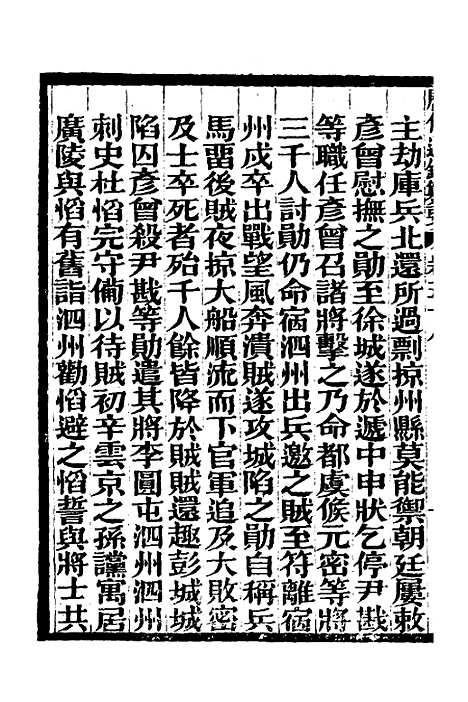 主劫庫兵北還所過剽掠州縣莫能禦朝廷屢敕
彥曾慰撫之勛至徐城遂於遞中申狀乞停尹戡
等職任彥曾召諸將擊之乃命都虞候元密等將
三千人討勛仍命宿泗州出兵邀之賊至符離宿
州戍卒出戰望風奔潰賊遂攻城陷之勛自稱兵
馬畱後賊夜掠大船順流而下官軍追及大敗密
及士卒死者殆千人餘皆降於賊賊還趣彭城城
陷囚彥曾殺尹戡等勛遣其將李圓屯泗州泗州
刺史杜慆完守備以待賊初辛雲京之孫讜寓居
廣陵與慆有舊詣泗州勸慆避之慆誓與將士共